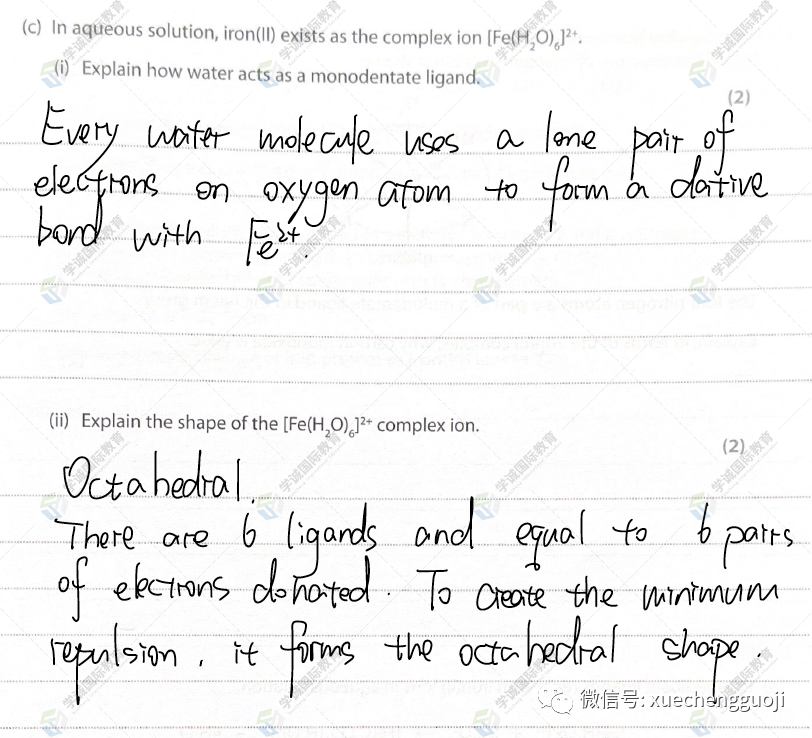 (c) In aqueous solution, iron(II) exists as the complex ion [Fe(H₂O)₆]²⁺.
(i) Explain how water acts as a monodentate ligand.
(2)
Every water molecule uses a lone pair of
electrons on oxygen atom to form a dative
bond with Fe²⁺.
(ii) Explain the shape of the [Fe(H₂O)₆]²⁺ complex ion.
(2)
Octahedral.
There are 6 ligands and equal to 6 pairs
of electrons donated. To create the minimum
repulsion, it forms the octahedral shape.
微信号: xuechengguoji
学诚国际教育